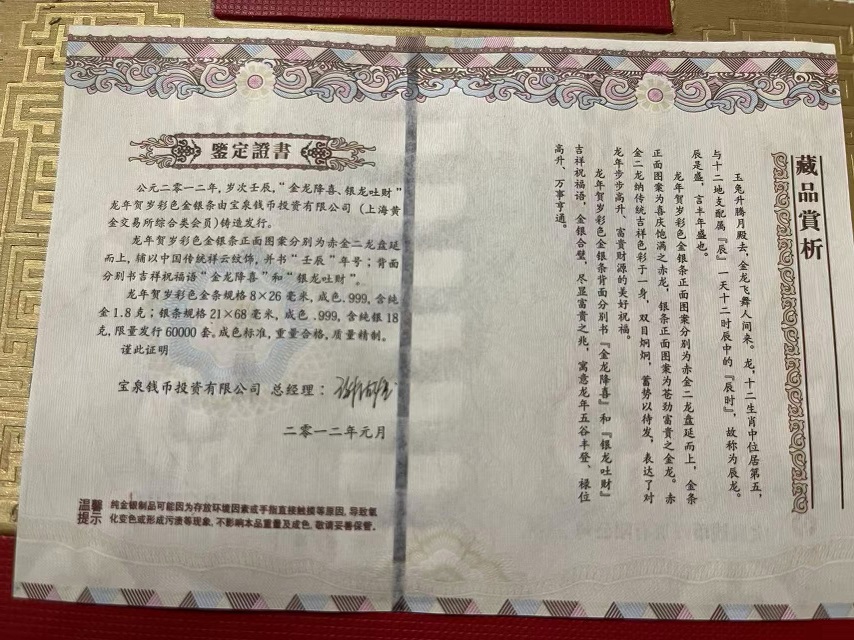 鑒定證書
公元二零一二年，岁次壬辰，“金龙降喜、银龙吐财”
龙年贺岁彩色金银条由宝泉钱币投资有限公司（上海黄
金交易所综合类会员）铸造发行。
龙年贺岁彩色金银条正面图案分别为赤金二龙盘延
而上，辅以中国传统祥云纹饰，并书“壬辰”年号；背面
分别书吉祥祝福语“金龙降喜”和“银龙吐财”。
龙年贺岁彩色金条规格8×26毫米，成色.999，含纯
金1.8克；银条规格21×68毫米，成色.999，含纯银18
克，限量发行60000套。成色标准，重量合格，质量精制。
谨此证明
宝泉钱币投资有限公司 总经理：
二零一二年元月
温馨
提示
纯金银制品可能因为存放环境因素或手指直接触摸等原因，导致氧
化变色或形成污渍等现象，不影响本品重量及成色，敬请妥善保管。
藏品賞析
玉兔升腾月殿去，金龙飞舞人间来。龙，十二生肖中位居第五，
与十二地支配属『辰』，一天十二时辰中的『辰时』，故称为辰龙。
辰是盛，言半年盛也。
龙年贺岁彩色金银条正面图案分别为赤金二龙盘延而上，金条
正面图案为喜庆饱满之赤龙，银条正面图案为苍劲富贵之金龙。赤
金二龙纳传统吉祥色彩于一身，双目炯炯，蓄势以待发，表达了对
龙年步步高升、富贵财源的美好祝福。
龙年贺岁彩色金银条背面分别书『金龙降喜』和『银龙吐财』
吉祥祝福语，金银合璧，尽显富贵之兆，寓意龙年五谷丰登、禄位
高升、万事亨通。